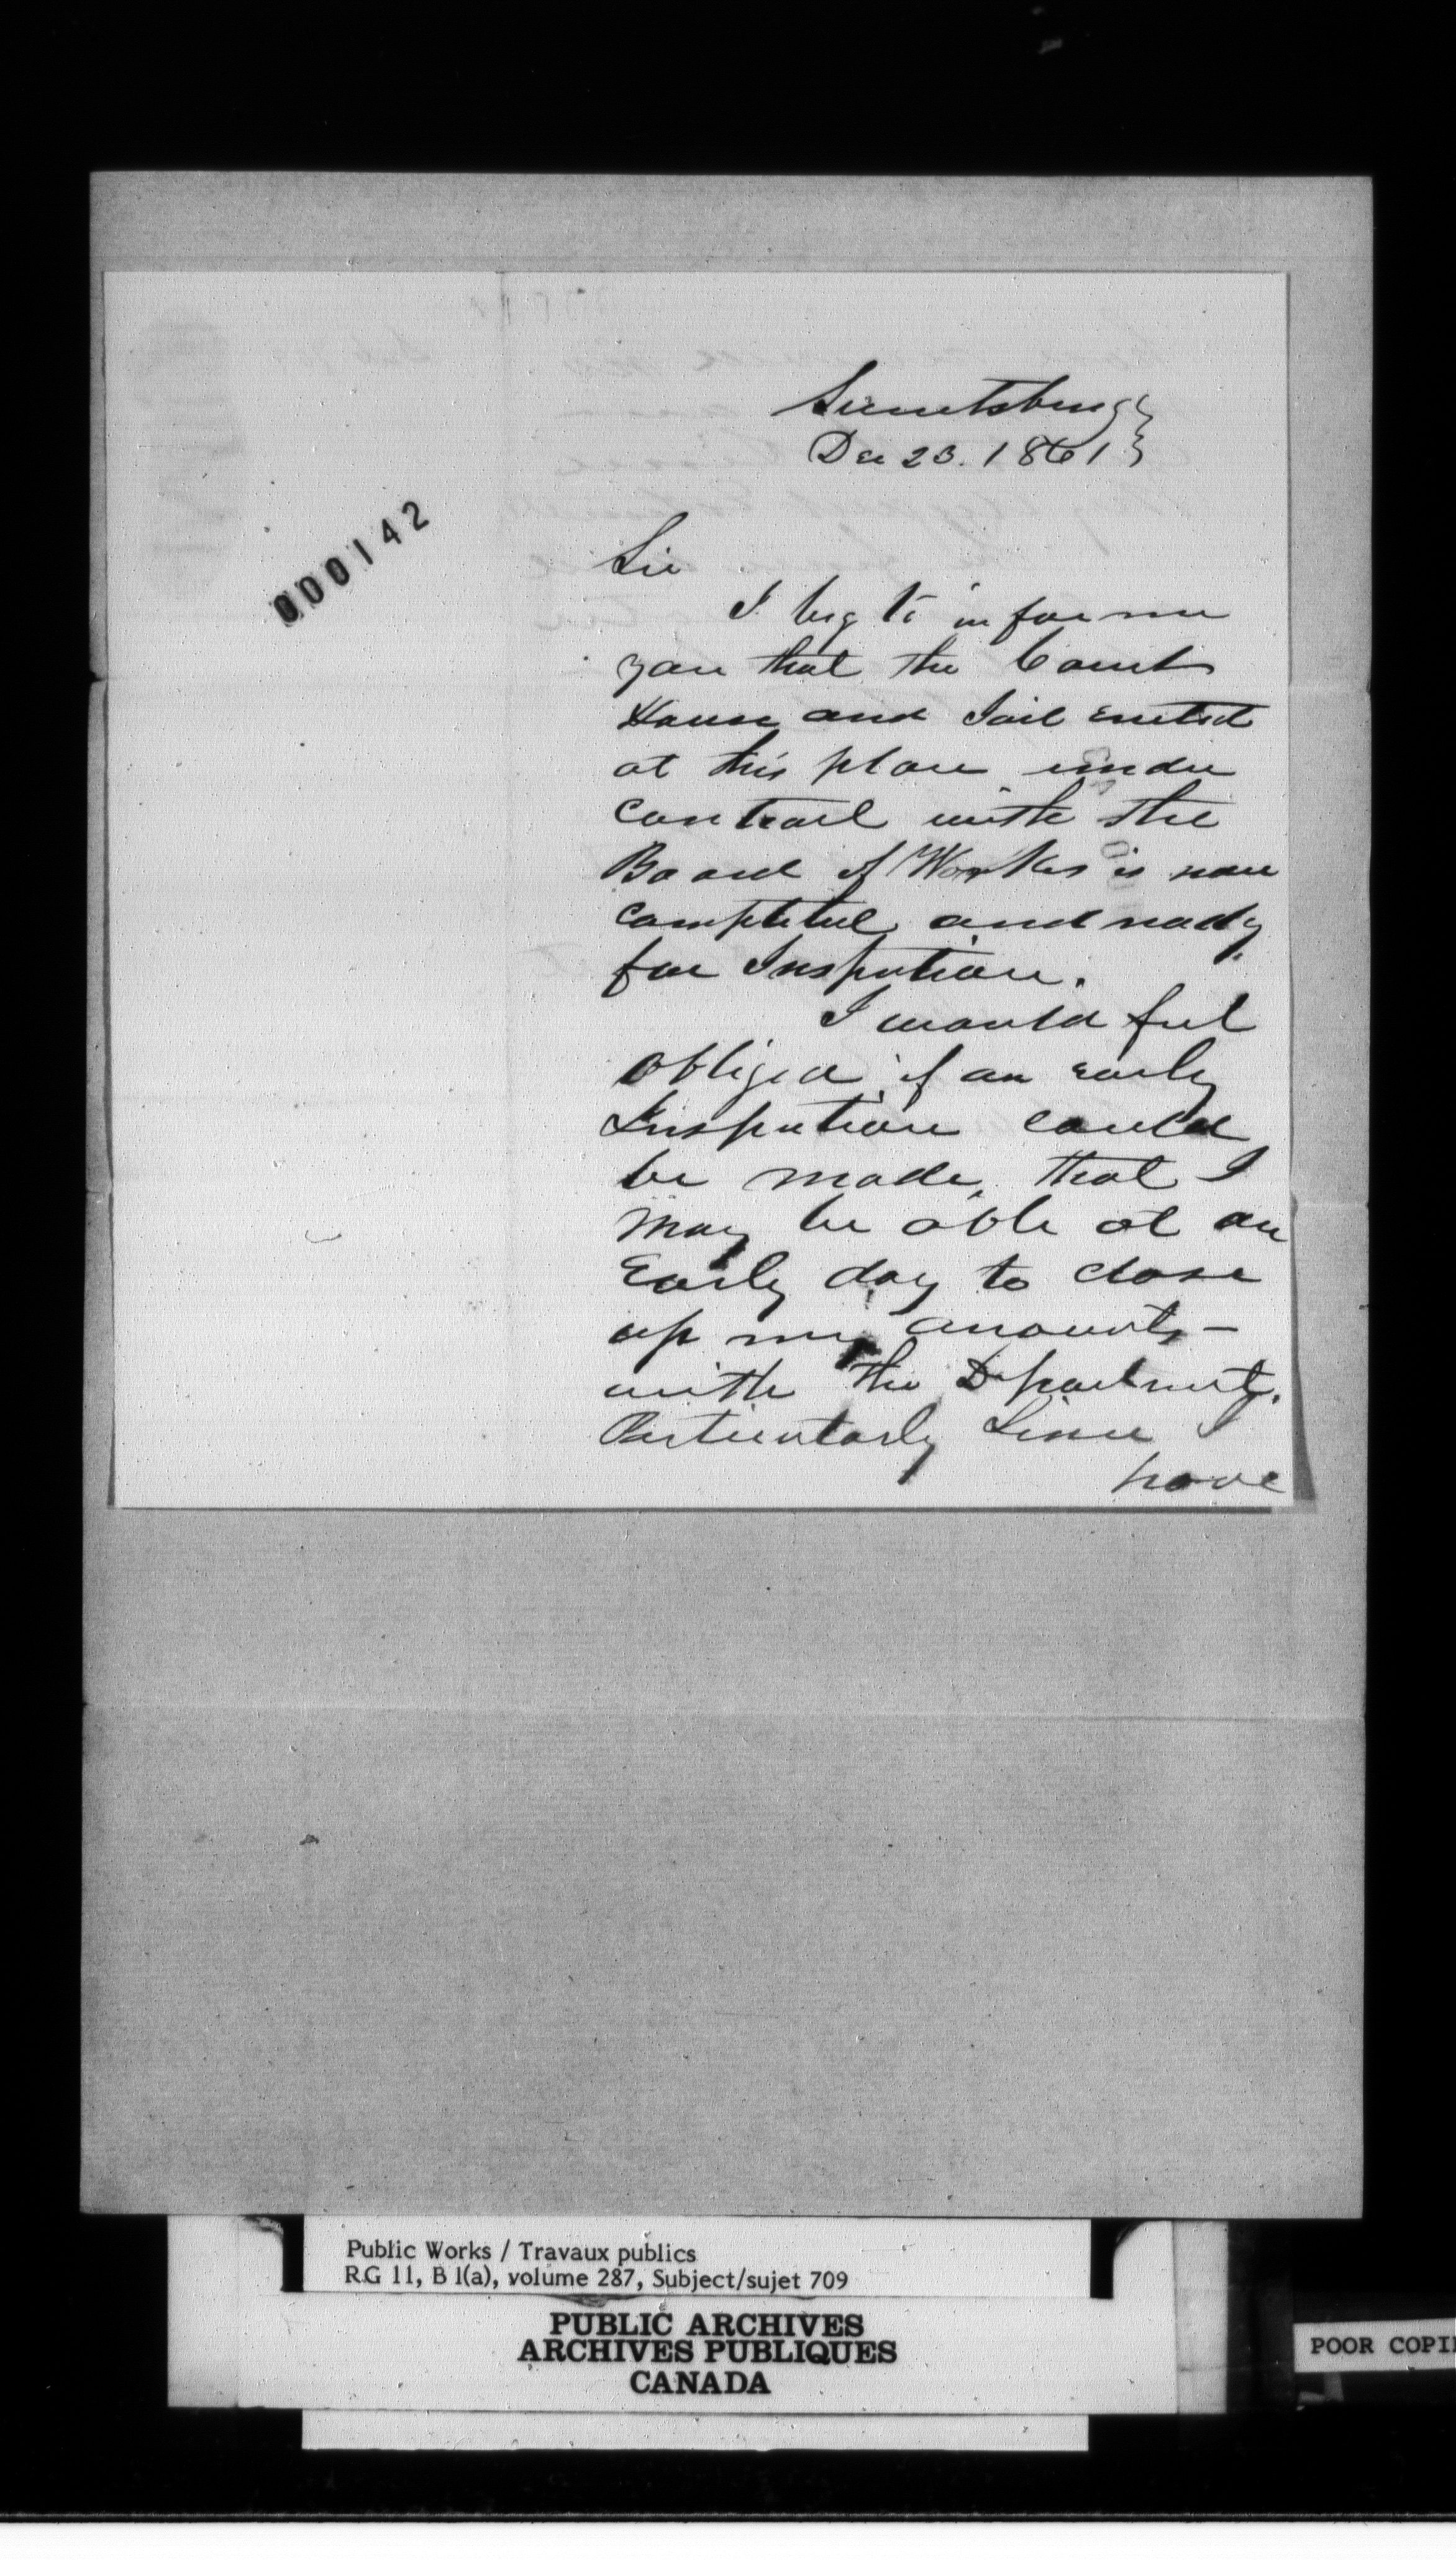 Sweetsburg
Dec 23. 1861
000142
Sir
I beg to inform
you that the Court
House and Jail erected
at this place under
contract with the
Board of Works is now
completed and ready
for Inspection.
I would feel
obliged if an early
Inspection could
be made, that I
may be able at an
Early day to close
up my accounts –
with the Department.
Particularly Since I
have
Public Works / Travaux publics
RG 11, B 1(a), volume 287, Subject/sujet 709
PUBLIC ARCHIVES
ARCHIVES PUBLIQUES
CANADA
POOR COPI